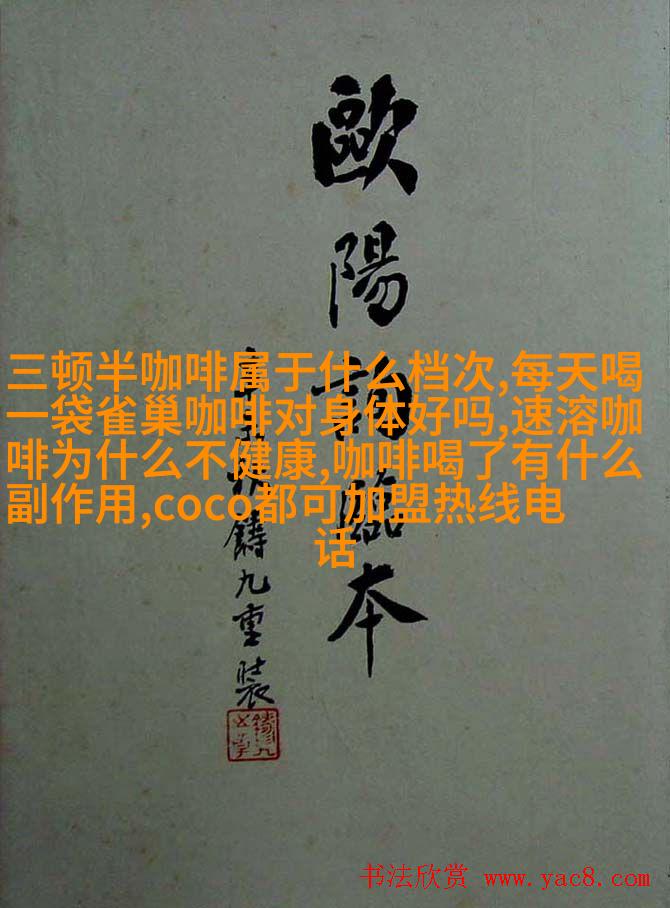 歐陽詢臨本
鑄九重裝
三顿半咖啡属于什么档次,每天喝
一袋雀巢咖啡对身体好吗,速溶咖
啡为什么不健康,咖啡喝了有什么
副作用,coco都可加盟热线电
话
书法欣赏 www.yac8.com